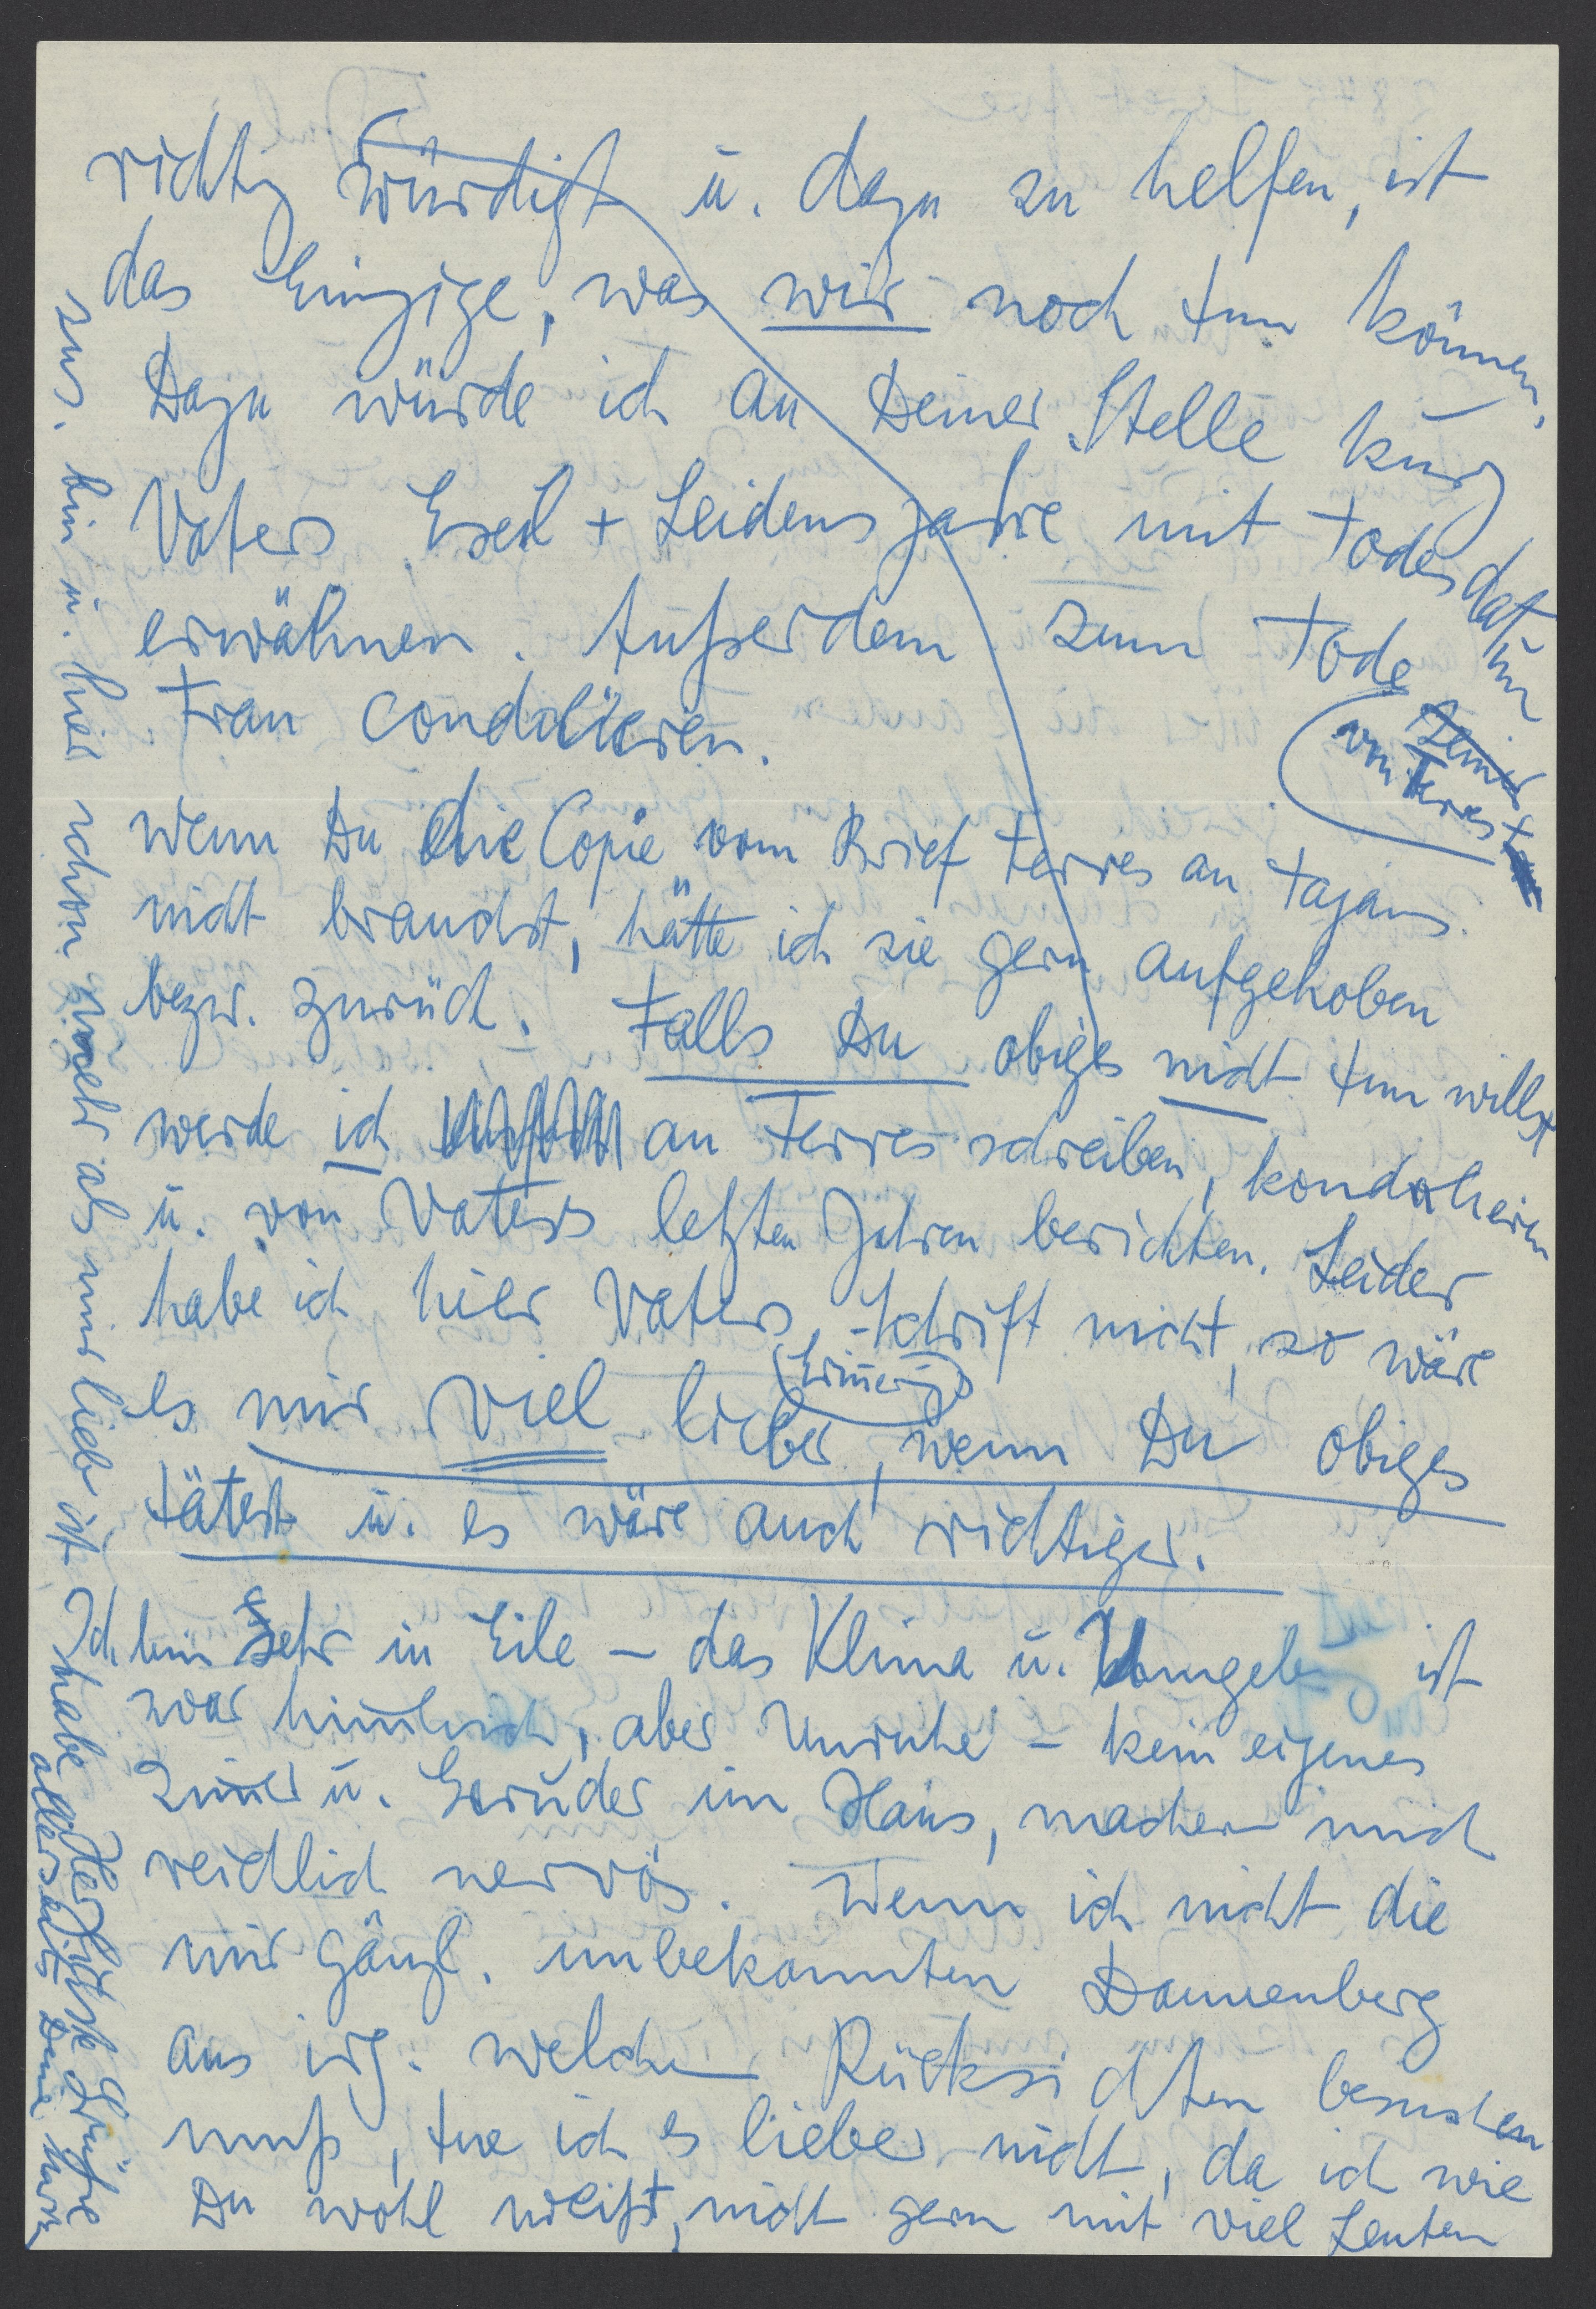 richtig würdigt u. dazu zu helfen, ist
das Einzige, was wir noch tun können.
Dazu würde ich an Deiner Stelle kurz
Vaters Exil + Leidensjahre mit Todesdatum
erwähnen. Außerdem zum Tode
(seiner
von Terres
Frau condolieren.
Wenn Du die Copie vom Brief Terres an Tajans
nicht brauchst, hätte ich sie gern aufgehoben
bezw. zurück. Falls Du obiges nicht tun willst
werde ich an Terres schreiben, kondolieren
u. von Vaters letzten Jahren berichten. Leider
habe ich hier Vaters Schrift nicht, so wäre
es mir viel lieber, wenn Du obiges
tätest u. es wäre auch richtiger.
Ich bin sehr in Eile – das Klima u. Umgebung ist
zwar himmlisch, aber Unruhe – kein eigenes
Zimer u. Besuder im Haus, machen mich
reichlich nervös. Wenn ich nicht die
mir gänzl. unbekannten Dannenberg
aus irg. welchen Rücksichten besuchen
muß, tue ich es lieber nicht, da ich wie
Du wohl weißt, nicht gern mit viel Leuten
zus. bin u. hier schon mehr als mir lieb ist. habe
Herzlichste Grüße
allerseits Deine